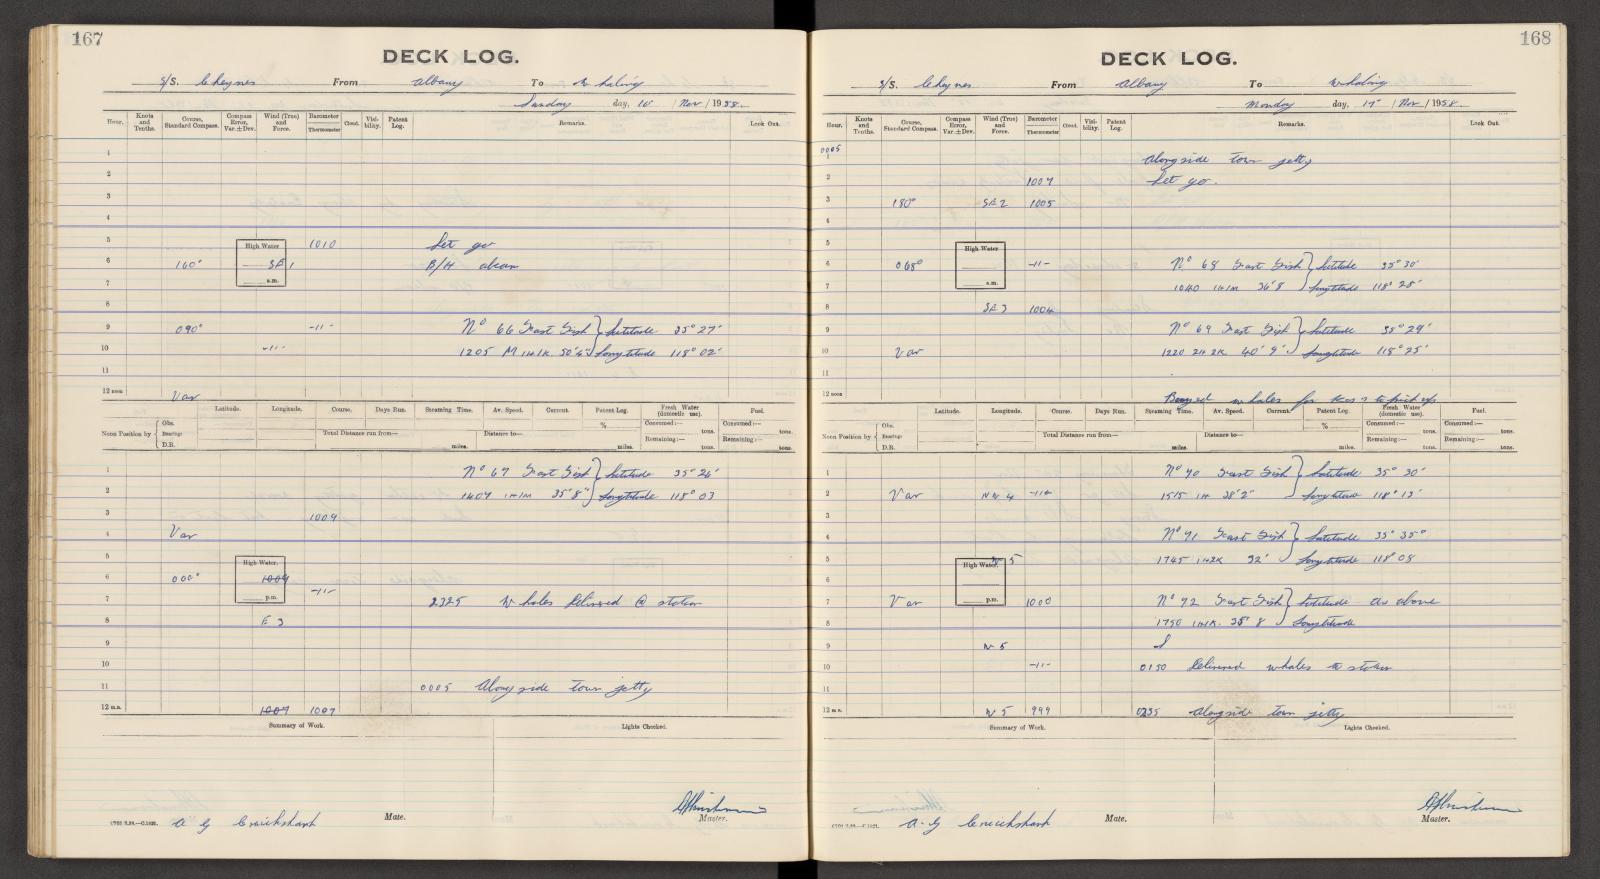 167
DECK LOG.
S/S. Cheynes From Albany To Whaling
Sunday day, 16 / Nov / 1958.
Hour. Knots and Tenths. Course, Standard Compass. Compass Error, Var. ± Dev. Wind (True) and Force. Barometer Thermometer Cloud. Visibility. Patent Log. Remarks. Look Out.
1
2
3
4
5 High Water 1010 Let go
6 160° SE 1 B/H abeam
7 a.m.
8
9 090° -11- No 66 Fast Fish } Latitude 35° 27'
10 -11- 1205 M 1H1K 50'4" } Longtitude 118° 02'
11
12 noon Var
Latitude. Longitude. Course. Days Run. Steaming Time. Av. Speed. Current. Patent Log. Fresh Water (domestic use). Fuel.
Noon Position by { Obs. Bearings D.R. Total Distance run from— miles. Distance to— % miles. Consumed:— tons. Remaining:— tons. Consumed:— tons. Remaining:— tons.
1 No 67 Fast Fish } Latitude 35° 26'
2 1407 1H1M 35'8" } Longtitude 118° 03
3 1009
4 Var
5 High Water.
6 000° 1009
7 p.m. -11- 2325 Whales Delivered @ station
8 E 3
9
10
11 0005 Alongside town jetty
12 m.n. 1007 1007
Summary of Work. Lights Checked.
A G Cruickshank Mate. Master.
168
DECK LOG.
S/S. Cheynes From Albany To Whaling
Monday day, 17 / Nov / 1958.
Hour. Knots and Tenths. Course, Standard Compass. Compass Error, Var. ± Dev. Wind (True) and Force. Barometer Thermometer Cloud. Visibility. Patent Log. Remarks. Look Out.
0005
1 Alongside town jetty
2 1007 Let go.
3 180° SE 2 1005
4
5 High Water
6 068° -11- No 68 Fast Fish } Latitude 35° 30'
7 a.m. 1040 1H1M 36'8 } Longtitude 118° 25'
8 SE 3 1004
9 No 69 Fast Fish } Latitude 35° 29'
10 Var 1220 2H2K 40' 9" } Longtitude 118° 25'
11
12 noon Buoyed whales for Kos 2 to pick up
Latitude. Longitude. Course. Days Run. Steaming Time. Av. Speed. Current. Patent Log. Fresh Water (domestic use). Fuel.
Noon Position by { Obs. Bearings D.R. Total Distance run from— miles. Distance to— % miles. Consumed:— tons. Remaining:— tons. Consumed:— tons. Remaining:— tons.
1 No 70 Fast Fish } Latitude 35° 30'
2 Var NW 4 -11- 1515 1H 38'2" } Longtitude 118° 13'
3
4 No 71 Fast Fish } Latitude 35° 35'
5 High Water. W 5 1745 1H2K 32' } Longtitude 118° 08
6
7 Var p.m. 1000 No 72 Fast Fish } Latitude as above
8 1750 1H1K. 38' 8 } Longtitude
9 W 5
10 -11- 0150 Delivered whales to station
11
12 m.n. W 5 999 0235 Alongside town jetty
Summary of Work. Lights Checked.
A. G Cruickshank Mate. Master.